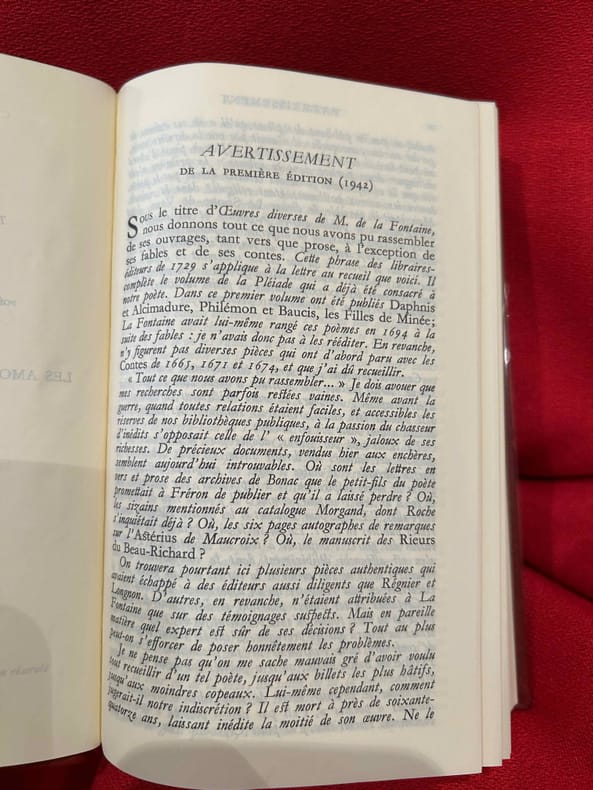 AVERTISSEMENT
AVERTISSEMENT
DE LA PREMIÈRE ÉDITION (1942)
Sous le titre d'Œuvres diverses de M. de la Fontaine,
nous donnons tout ce que nous avons pu rassembler
de ses ouvrages, tant vers que prose, à l'exception de
ses fables et de ses contes. Cette phrase des libraires-
éditeurs de 1729 s'applique à la lettre au recueil que voici. Il
complète le volume de la Pléiade qui a déjà été consacré à
notre poète. Dans ce premier volume ont été publiés Daphnis
et Alcimadure, Philémon et Baucis, les Filles de Minée;
La Fontaine avait lui-même rangé ces poèmes en 1694 à la
suite des fables : je n'avais donc pas à les rééditer. En revanche,
n'y figurent pas diverses pièces qui ont d'abord paru avec les
Contes de 1665, 1671 et 1674, et que j'ai dû recueillir.
« Tout ce que nous avons pu rassembler... » Je dois avouer que
mes recherches sont parfois restées vaines. Même avant la
guerre, quand toutes relations étaient faciles, et accessibles les
réserves de nos bibliothèques publiques, à la passion du chasseur
d'inédits s'opposait celle de l' « enfouisseur », jaloux de ses
richesses. De précieux documents, vendus hier aux enchères,
semblent aujourd'hui introuvables. Où sont les lettres en
vers et prose des archives de Bonac que le petit-fils du poète
promettait à Fréron de publier et qu'il a laissé perdre ? Où,
les sizains mentionnés au catalogue Morgand, dont Roche
s'inquiétait déjà ? Où, les six pages autographes de remarques
sur l'Astérius de Maucroix ? Où, le manuscrit des Rieurs
du Beau-Richard ?
On trouvera pourtant ici plusieurs pièces authentiques qui
avaient échappé à des éditeurs aussi diligents que Régnier et
Longnon. D'autres, en revanche, n'étaient attribuées à La
Fontaine que sur des témoignages suspects. Mais en pareille
matière quel expert est sûr de ses décisions ? Tout au plus
peut-on s'efforcer de poser honnêtement les problèmes.
Je ne pense pas qu'on me sache mauvais gré d'avoir voulu
tout recueillir d'un tel poète, jusqu'aux billets les plus hâtifs,
jusqu'aux moindres copeaux. Lui-même cependant, comment
jugerait-il notre indiscrétion ? Il est mort à près de soixante-
quatorze ans, laissant inédite la moitié de son œuvre. Ne le